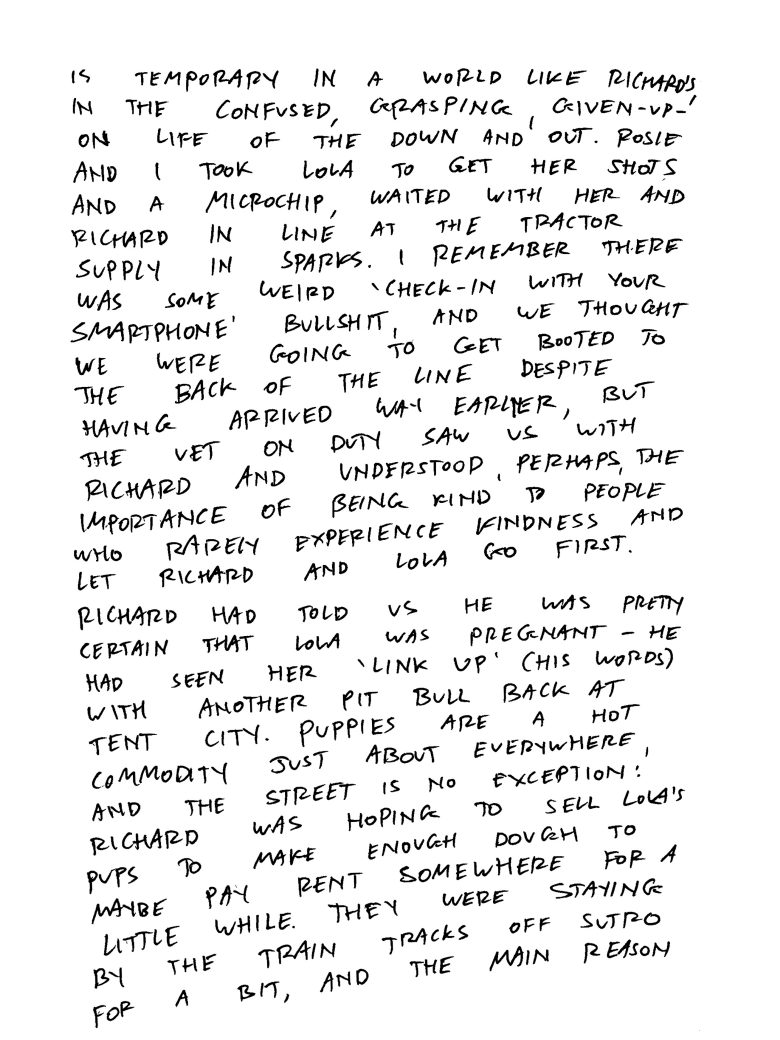 IS TEMPORARY IN A WORLD LIKE RICHARD'S,
IN THE CONFUSED, GRASPING, GIVEN-UP-
ON LIFE OF THE DOWN AND OUT. ROSIE
AND I TOOK LOLA TO GET HER SHOTS
AND A MICROCHIP, WAITED WITH HER AND
RICHARD IN LINE AT THE TRACTOR
SUPPLY IN SPARKS. I REMEMBER THERE
WAS SOME WEIRD 'CHECK-IN WITH YOUR
SMARTPHONE' BULLSHIT, AND WE THOUGHT
WE WERE GOING TO GET BOOTED TO
THE BACK OF THE LINE DESPITE
HAVING ARRIVED WAY EARLIER, BUT
THE VET ON DUTY SAW US WITH
RICHARD AND UNDERSTOOD, PERHAPS, THE
IMPORTANCE OF BEING KIND TO PEOPLE
WHO RARELY EXPERIENCE KINDNESS AND
LET RICHARD AND LOLA GO FIRST.
RICHARD HAD TOLD US HE WAS PRETTY
CERTAIN THAT LOLA WAS PREGNANT – HE
HAD SEEN HER 'LINK UP' (HIS WORDS)
WITH ANOTHER PIT BULL BACK AT
TENT CITY. PUPPIES ARE A HOT
COMMODITY JUST ABOUT EVERYWHERE,
AND THE STREET IS NO EXCEPTION:
RICHARD WAS HOPING TO SELL LOLA'S
PUPS TO MAKE ENOUGH DOUGH TO
MAYBE PAY RENT SOMEWHERE FOR A
LITTLE WHILE. THEY WERE STAYING
BY THE TRAIN TRACKS OFF SUTRO
FOR A BIT, AND THE MAIN REASON